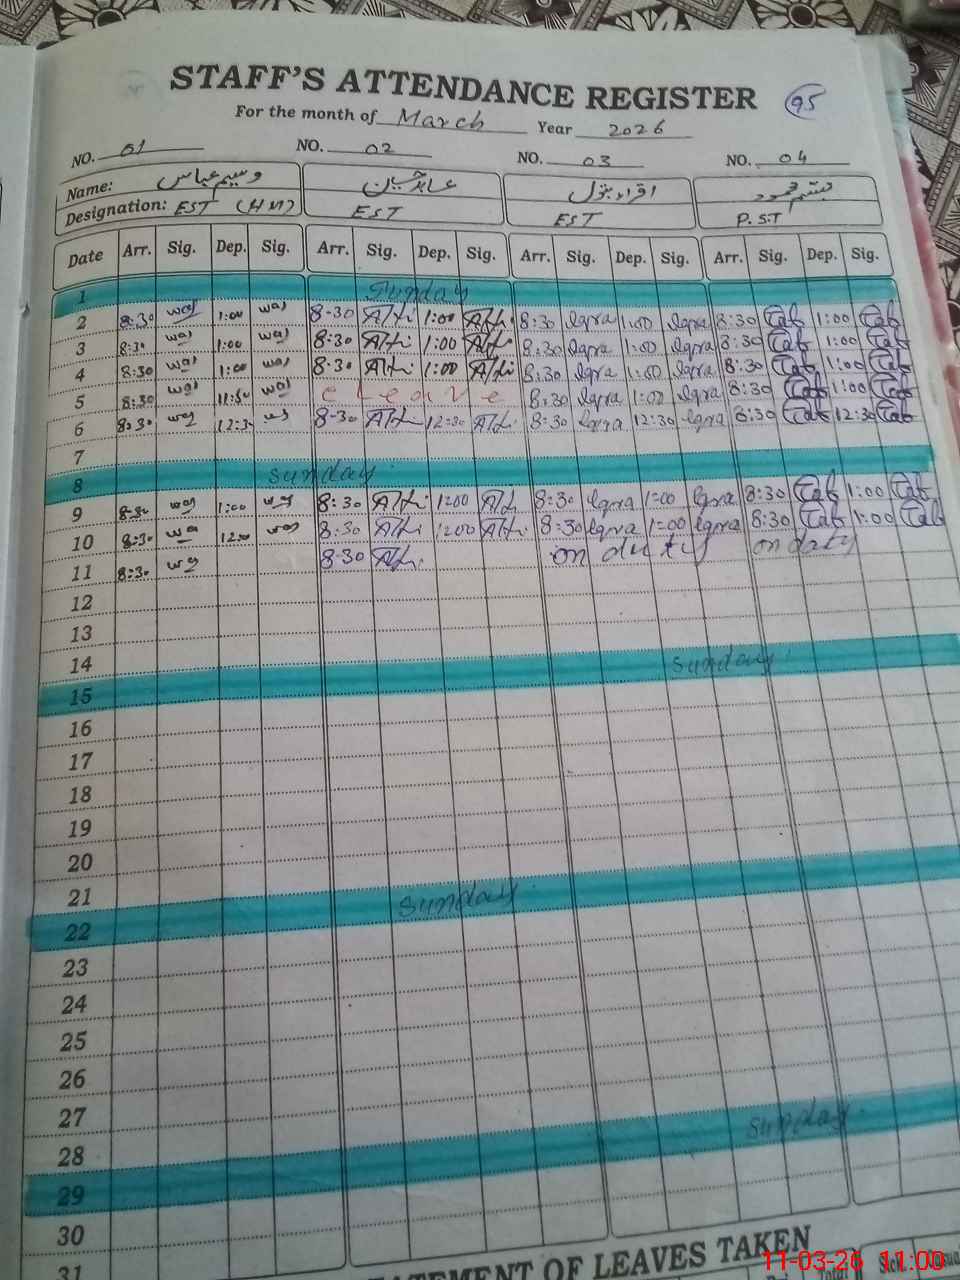 STAFF'S ATTENDANCE REGISTER
95
For the month of March Year 2026
NO. 01 NO. 02 NO. 03 NO. 04
Name: وسیم عباس عابد حسین اقراء بتول تبسم محمود
Designation: EST (HM) EST EST P.S.T
Date Arr. Sig. Dep. Sig. Arr. Sig. Dep. Sig. Arr. Sig. Dep. Sig. Arr. Sig. Dep. Sig.
1 Sunday
2 8:30 was 1:00 was 8-30 1:00 8:30 Iqra 1:00 Iqra 8:30 Tab 1:00 Tab
3 8:30 was 1:00 was 8:30 1:00 8:30 Iqra 1:00 Iqra 8:30 Tab 1:00 Tab
4 8:30 was 1:00 was 8:30 1:00 8:30 Iqra 1:00 Iqra 8:30 Tab 1:00 Tab
5 8:30 was 11:50 was c Leave 8:30 Iqra 1:00 Iqra 8:30 Tab 1:00 Tab
6 8:30 12:30 8-30 12:30 8:30 Iqra 12:30 Iqra 8:30 Tab 12:30 Tab
7
8 Sunday
9 8:30 was 1:00 8:30 1:00 8:30 Iqra 1:00 Iqra 8:30 Tab 1:00 Tab
10 8:30 was 12:00 was 8:30 1:00 8:30 Iqra 1:00 Iqra 8:30 Tab 1:00 Tab
11 8:30 8:30 on duty on duty
12
13
14
15 Sunday
16
17
18
19
20
21
22 Sunday
23
24
25
26
27
28
29 Sunday
30
31
STATEMENT OF LEAVES TAKEN
11-03-26 11:00